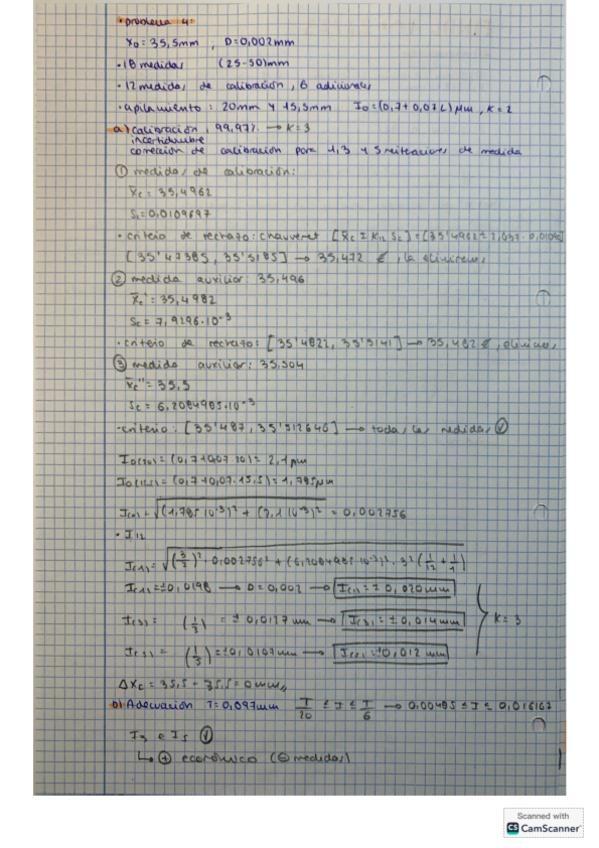 • problema 4:
x₀ = 35,5mm , D = 0,002mm
• 18 medidas (25-50)mm
• 12 medidas de calibración, 6 adicionales
• apilamiento: 20mm y 15,5mm I₀ = (0,7 + 0,07L) μm, K = 2
a) calibración, 99,97% → K = 3
incertidumbre
corrección de calibración para 1, 3 y 5 reiteraciones de medida
① medidas de calibración:
x̄c = 35,4962
Sc = 0,0109697
• criterio de rechazo: chauvenet
→ 35,472 ∉, la eliminamos
② medida auxiliar: 35,496
x̄c' = 35,4982
Sc = 7,9296·10⁻³
• criterio de rechazo: [35'4822, 35'5141] → 35,482 ∉,
③ medida auxiliar: 35,504
x̄c'' = 35,5
Sc = 6,2084985·10⁻³
-criterio: [35'487, 35'512646] → todas las medidas ✓
I₀(20) = (0,7+0,07·20) = 2,1 μm
I₀(15,5) = (0,7+0,07·15,5) = 1,785 μm
= √((1,785·10⁻³)² + (2,1·10⁻³)²) = 0,002756
• I12
I(1) = √((3/2)²·0,002756² + (6,2084985·10⁻³)²·3²(1/12 + 1/1))
I(1) = ±0,0198 → D = 0,002 → I(1) = ±0,020mm
I(3) = (1/3) = ±0,0137mm → I(3) = ±0,014mm } K = 3
I(5) = (1/5) = ±0,0107mm → ±0,012mm
ΔXc = 35,5 - 35,5 = 0mm
b) Adecuación T = 0,097mm T/20 ≤ I ≤ T/6 → 0,00485 ≤ I ≤ 0,016167
I₃ e I₅ ✓
↳ ⊕ económico (⊖ medidas)
Scanned with
CS CamScanner